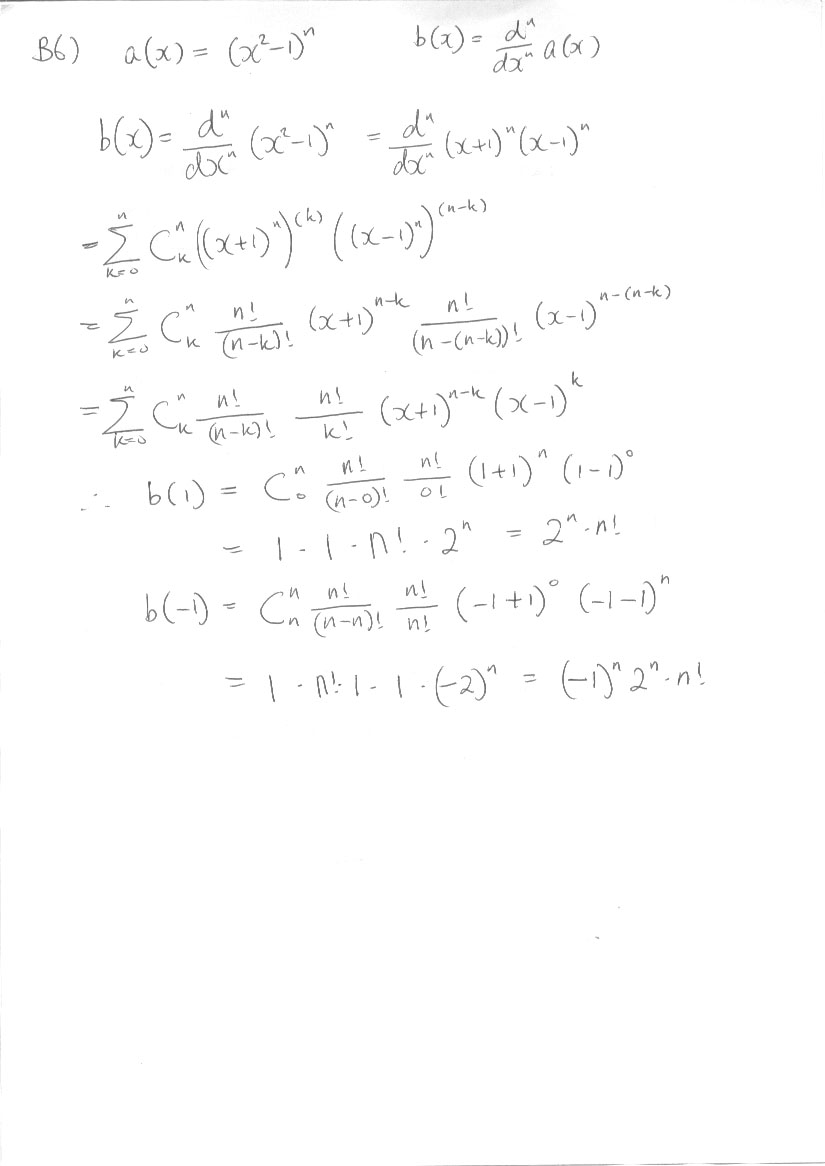 B6) a(x) = (x²-1)ⁿ b(x) = dⁿ/dxⁿ a(x)
b(x) = dⁿ/dxⁿ (x²-1)ⁿ = dⁿ/dxⁿ (x+1)ⁿ(x-1)ⁿ
= ∑_{k=0}^{n} C_k^n ((x+1)^n)^{(k)} ((x-1)^n)^{(n-k)}
= ∑_{k=0}^{n} C_k^n n!/(n-k)! (x+1)^{n-k} n!/(n-(n-k))! (x-1)^{n-(n-k)}
= ∑_{k=0}^{n} C_k^n n!/(n-k)! n!/k! (x+1)^{n-k} (x-1)^k
∴ b(1) = C_0^n n!/(n-0)! n!/0! (1+1)^n (1-1)^0
= 1 · 1 · n! · 2^n = 2^n · n!
b(-1) = C_n^n n!/(n-n)! n!/n! (-1+1)^0 (-1-1)^n
= 1 · n! · 1 · 1 · (-2)^n = (-1)^n 2^n · n!